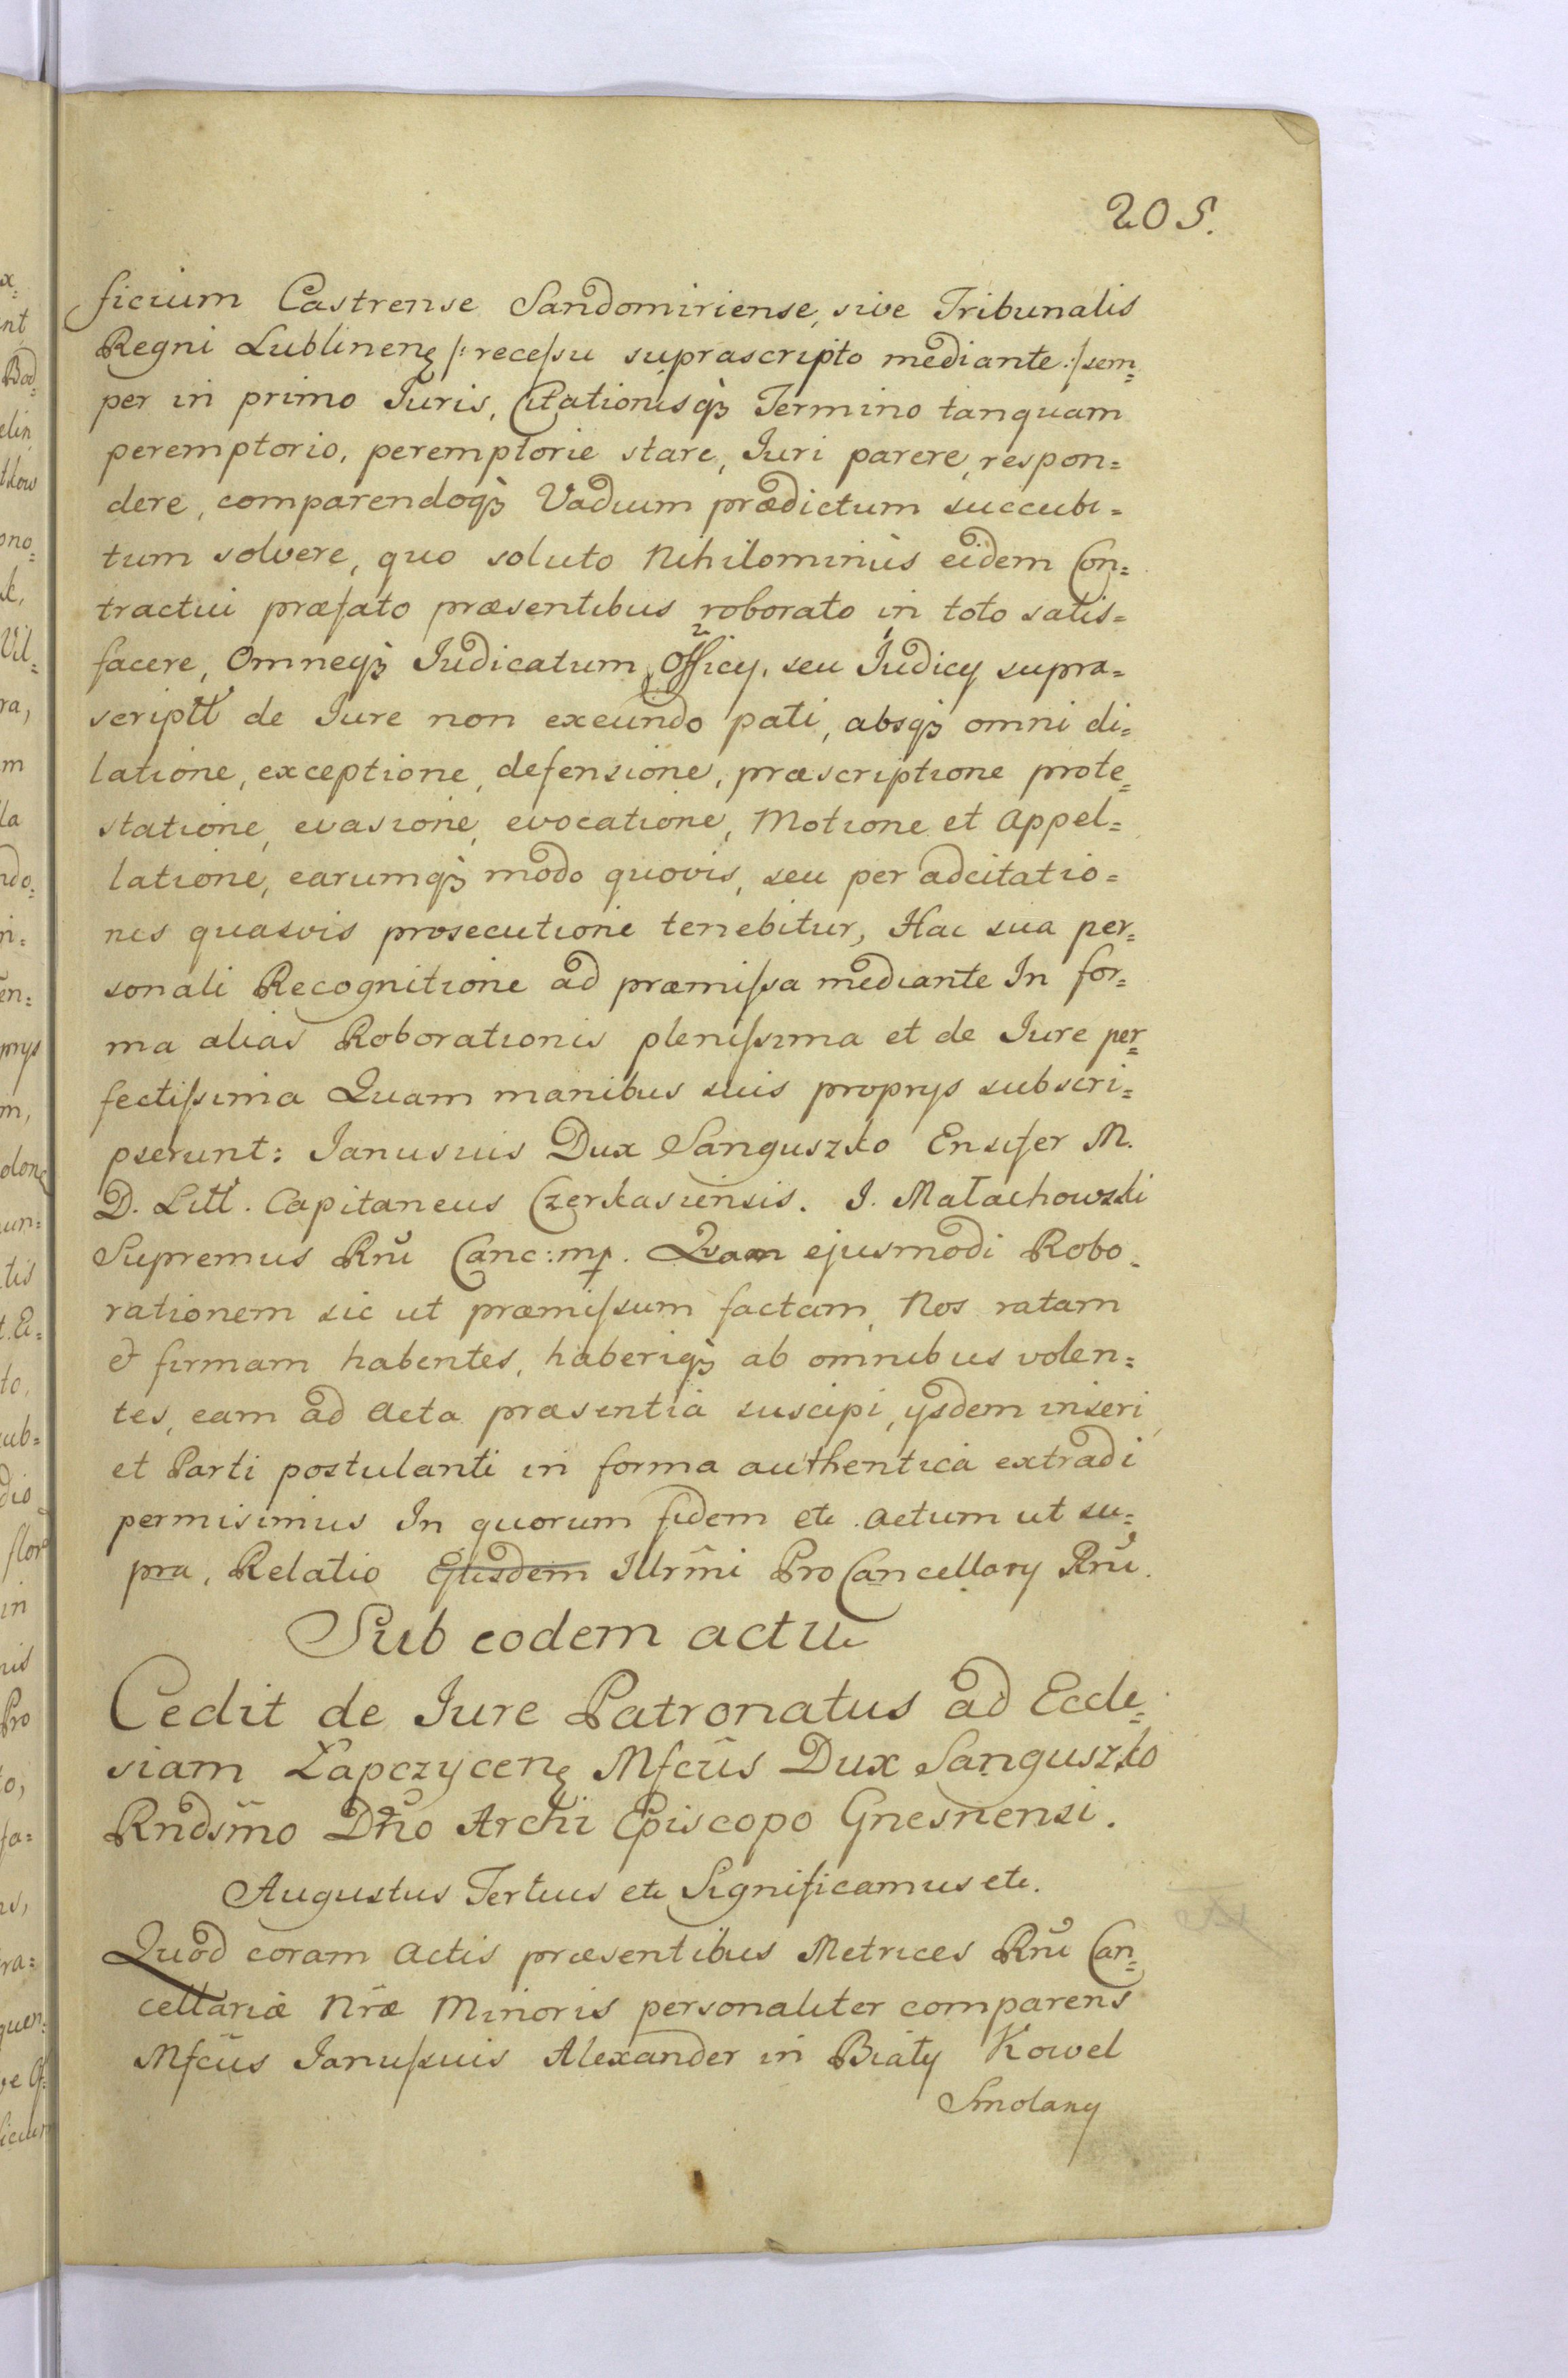 205.
ficium Castrense Sandomiriense, sive Tribunalis
Regni Lublinenę /: recessu suprascripto mediante :/ sem=
per in primo Juris, Citationisqꝫ Termino tanquam
peremptorio, peremptorie stare, Juri parere, respon=
dere, comparendoqꝫ Vadium prædictum succubi=
tum solvere, quo soluto Nihilominus eidem Con=
tractui præfato præsentibus roborato in toto satis=
facere, Omneqꝫ Judicatum, Officy, seu Judicy supra=
scriptt de Jure non exeundo pati, absqꝫ omni di=
latione, exceptione, defensione, præscriptione prote=
statione, evasione, evocatione, Motione et Appel=
latione, earumqꝫ modo quovis, seu per adcitatio=
nes quasvis prosecutione tenebitur, Hac sua per=
sonali Recognitione ad præmissa mediante In for=
ma alias Roborationis plenissima et de Jure per=
fectissima Quam manibus suis proprys subscri=
pserunt: Janusius Dux Sanguszko Ensifer M.
D. Litt. Capitaneus Czerkasiensis. J. Małachowski
Supremus Rnĩ Canc: mp. Quam ejusmodi Robo=
rationem sic ut præmissum factam, Nos ratam
& firmam habentes, haberiqꝫ ab omnibus volen=
tes, eam ad Acta præsentia suscipi, ysdem inseri,
et Parti postulanti in forma authentica extradi
permisimus In quorum fidem etc. Actum ut su=
pra, Relatio Ejusdem Illrm̃i ProCancellary Rnĩ.
Sub eodem actu
Cedit de Jure Patronatus ad Eccle=
siam Łapczycenę Mfcus Dux Sanguszko
Rndsm̃o Dño Archi Episcopo Gnesnensi.
Augustus Tertius etc Significamus etc.
Quod coram Actis præsentibus Metrices Rnĩ Can=
cellariæ Nræ Minoris personaliter comparens
Mfcus Janussius Alexander in Biały Kowel
Smolany